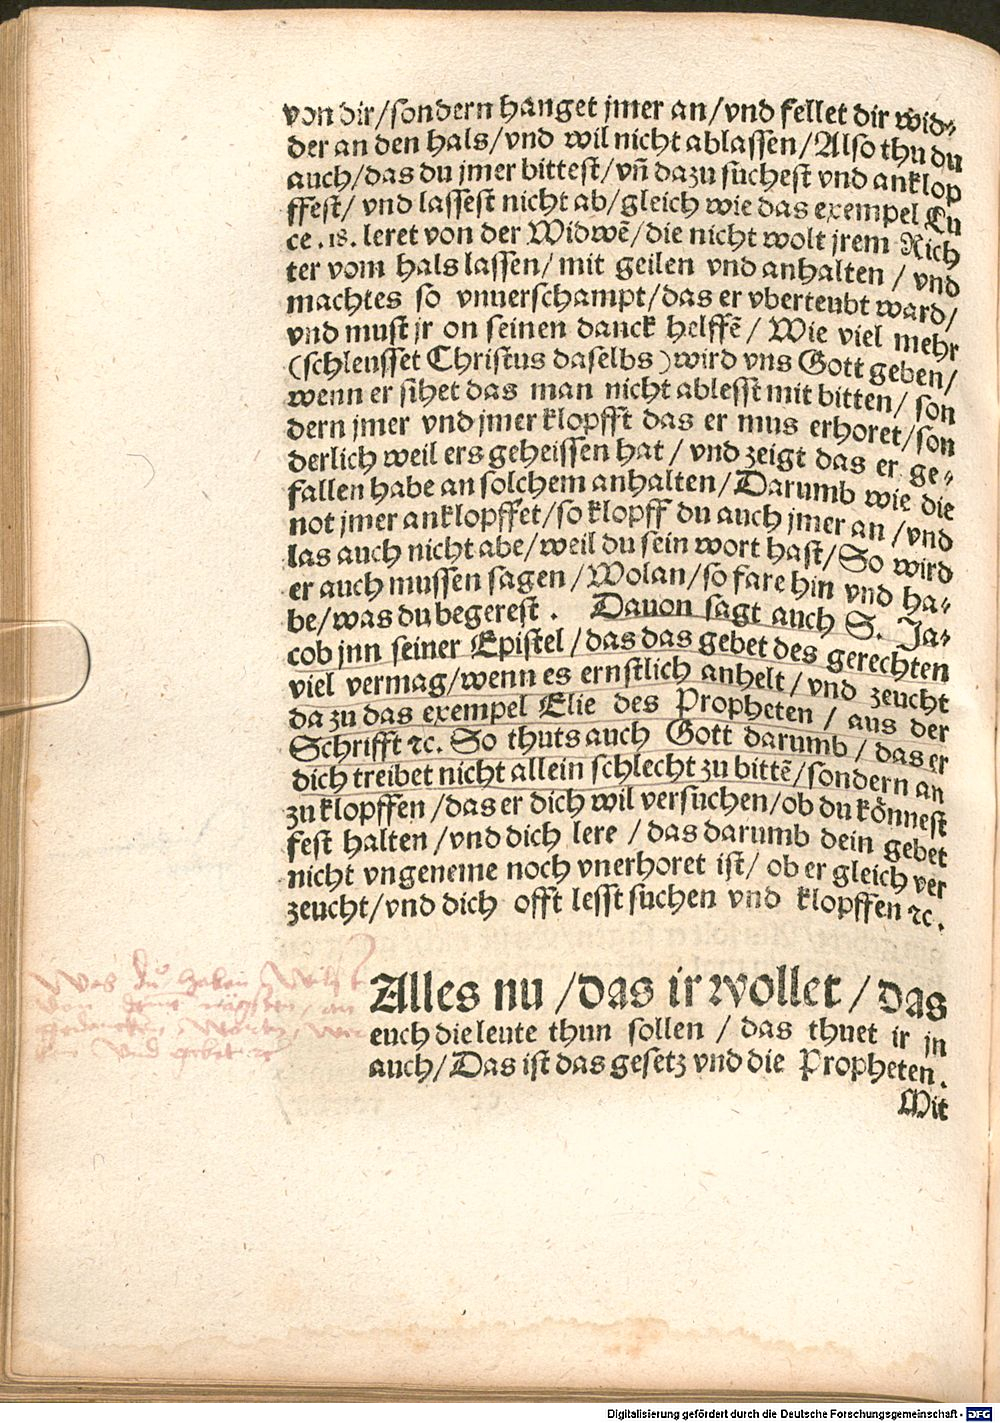 von dir/sondern hanget jmer an/vnd fellet dir wid-
der an den hals/vnd wil nicht ablassen/Also thu du
auch/das du jmer bittest/vñ dazu suchest vnd anklop
ffest/ vnd lassest nicht ab/gleich wie das exempel Lu
ce .18. leret von der Widwē/die nicht wolt jrem Rich
ter vom hals lassen/ mit geilen vnd anhalten / vnd
machtes so vnuerschampt/das er vberteubt ward/
vnd must jr on seinen danck helffē / Wie viel mehr
(schleusset Christus daselbs) wird vns Gott geben/
wenn er sihet das man nicht ablesst mit bitten/ son
dern jmer vnd jmer klopfft das er mus erhoret/son
derlich weil ers geheissen hat / vnd zeigt das er ge-
fallen habe an solchem anhalten/Darumb wie die
not jmer anklopffet/so klopff du auch jmer an /vnd
las auch nicht abe/weil du sein wort hast/So wird
er auch mussen sagen /Wolan/so fare hin vnd ha-
be/was du begerest . Dauon sagt auch S. Ja-
cob jnn seiner Epistel /das das gebet des gerechten
viel vermag/wenn es ernstlich anhelt/vnd zeucht
da zu das exempel Elie des Propheten / aus der
Schrifft ꝛc. So thuts auch Gott darumb / das er
dich treibet nicht allein schlecht zu bittē/sondern an
zu klopffen /das er dich wil versuchen/ob du könnest
fest halten /vnd dich lere / das darumb dein gebet
nicht vngeneme noch vnerhoret ist/ ob er gleich ver
zeucht/vnd dich offt lesst suchen vnd klopffen ꝛc.
Was du haben wilst
von
gedancken, Worten,
vnd gebet ꝛc
Alles nu /das ir wollet / das
euch die leute thun sollen / das thuet ir jn
auch/Das ist das gesetz vnd die Propheten.
Mit
Digitalisierung gefördert durch die Deutsche Forschungsgemeinschaft - DFG